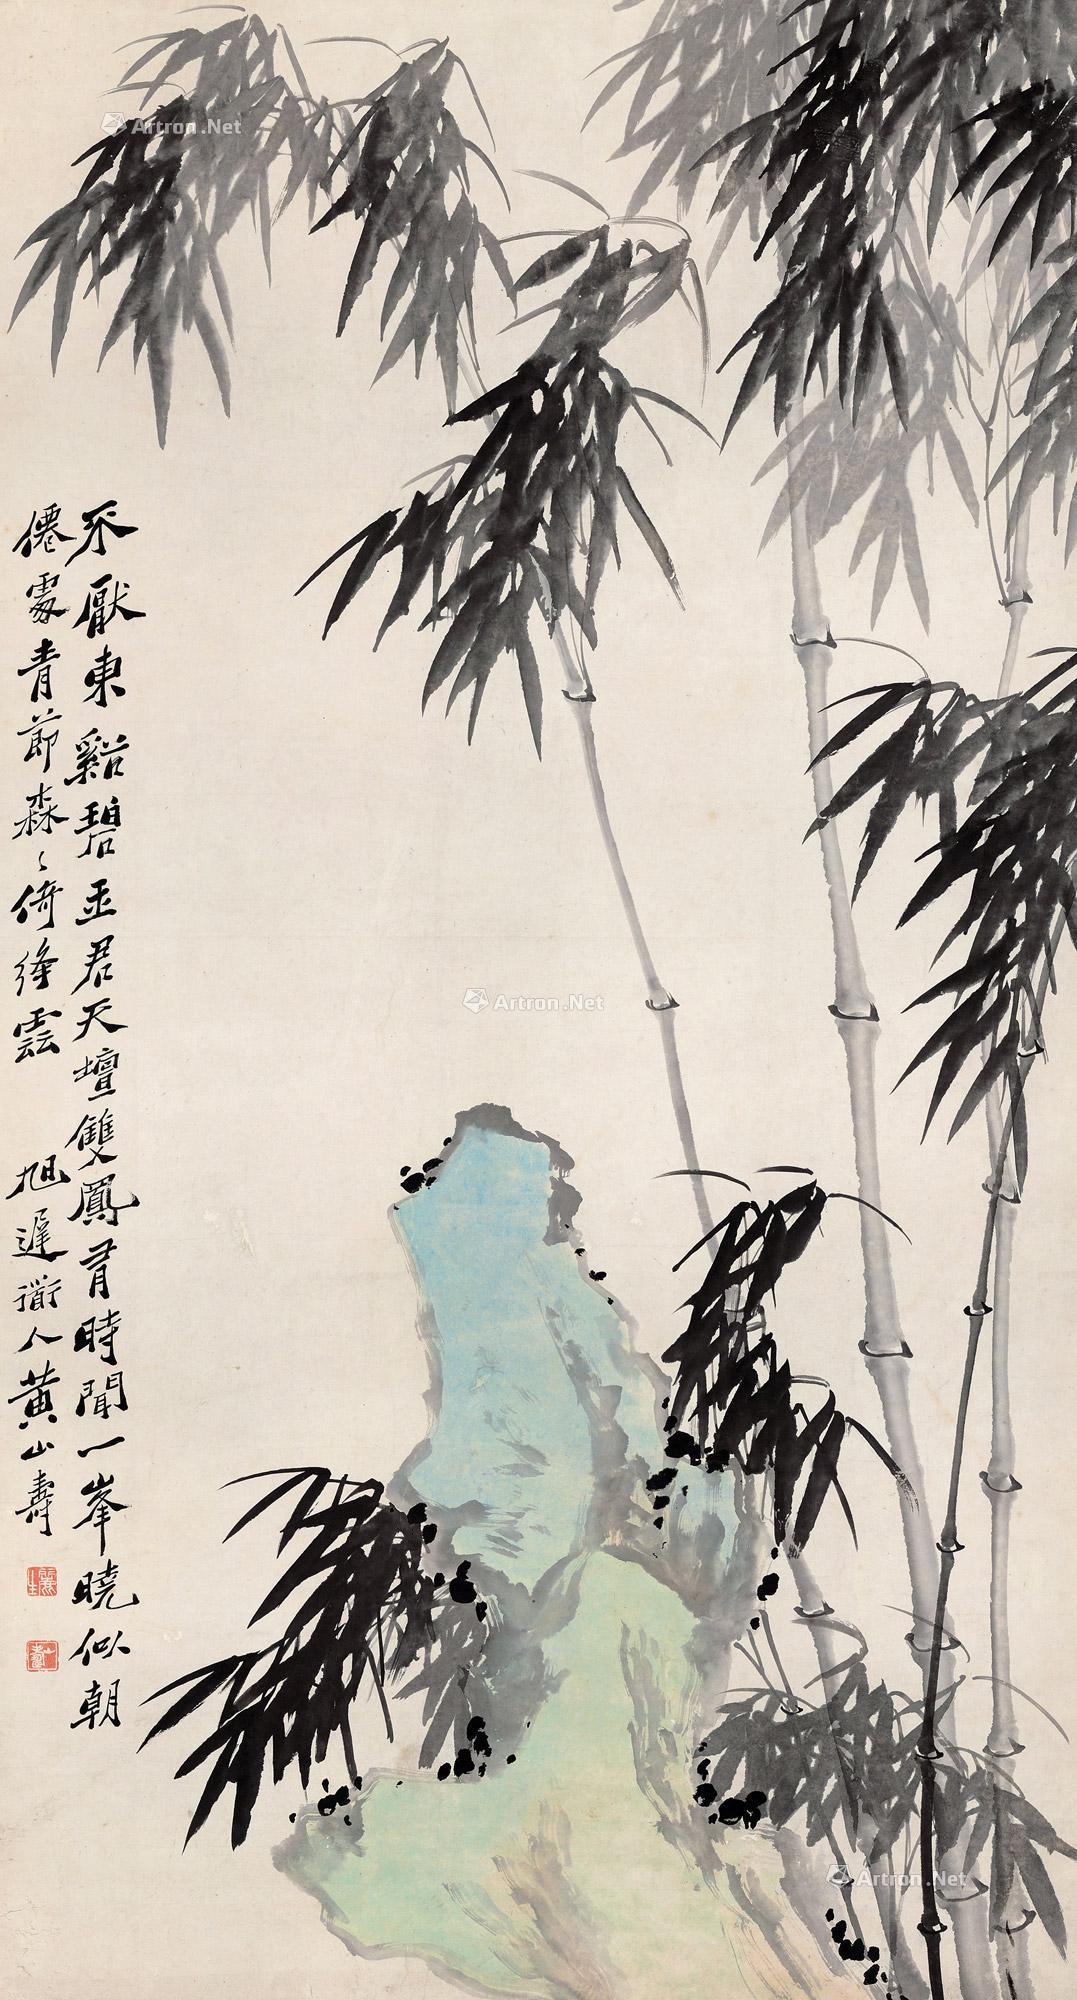 不厭東谿碧玉君天壇雙鳳有時聞一峯曉似朝
僊處青節森〻倚絳雲
旭遲道人黃山壽
Artron.Net
Artron.Net
Artron.Net